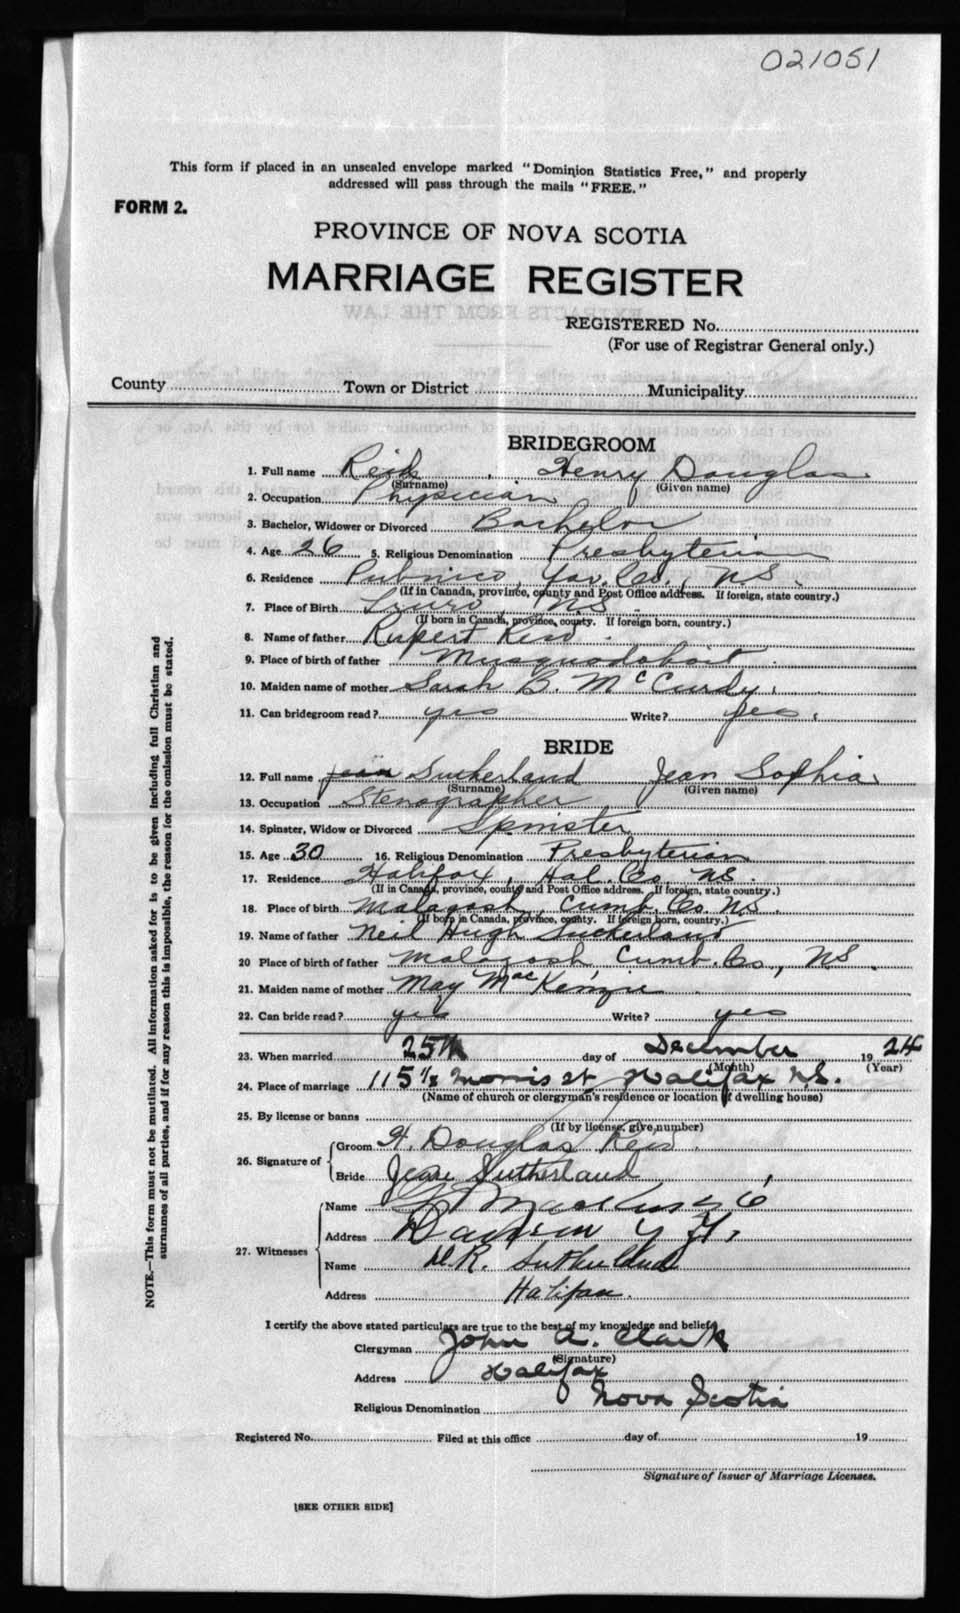 021051
This form if placed in an unsealed envelope marked "Dominion Statistics Free," and properly
addressed will pass through the mails "FREE."
FORM 2.
PROVINCE OF NOVA SCOTIA
MARRIAGE REGISTER
REGISTERED No.
(For use of Registrar General only.)
County Town or District Municipality
BRIDEGROOM
1. Full name Reid, Henry Douglas
(Surname) (Given name)
2. Occupation Physician
3. Bachelor, Widower or Divorced Bachelor
4. Age 26 5. Religious Denomination Presbyterian
6. Residence Pubnico, Yar. Co., N.S.
(If in Canada, province, county and Post Office address. If foreign, state country.)
7. Place of Birth Truro, N.S.
(If born in Canada, province, county. If foreign born, country.)
8. Name of father Rupert Reid.
9. Place of birth of father Musquodoboit.
10. Maiden name of mother Sarah B. McCurdy.
11. Can bridegroom read? yes Write? yes.
BRIDE
12. Full name Jean Sutherland Jean Sophia
(Surname) (Given name)
13. Occupation Stenographer
14. Spinster, Widow or Divorced Spinster
15. Age 30 16. Religious Denomination Presbyterian
17. Residence Halifax, Hal. Co. N.S.
(If in Canada, province, county and Post Office address. If foreign, state country.)
18. Place of birth Malagash, Cumb. Co. N.S.
(If born in Canada, province, county. If foreign born, country.)
19. Name of father Neil Hugh Sutherland
20 Place of birth of father Malagash Cumb. Co., N.S.
21. Maiden name of mother May MacKenzie
22. Can bride read? yes Write? yes
23. When married 25th day of December 1924
(Month) (Year)
24. Place of marriage 115½ Morris St Halifax N.S.
(Name of church or clergyman's residence or location of dwelling house)
25. By license or banns
(If by license, give number)
26. Signature of Groom H. Douglas Reid.
Bride Jean Sutherland
27. Witnesses Name MacKenzie
Address
Name D.R. Sutherland
Address Halifax.
I certify the above stated particulars are true to the best of my knowledge and belief.
Clergyman John A. Clark
(Signature)
Address Halifax
Nova Scotia
Religious Denomination
Registered No. Filed at this office day of 19
Signature of Issuer of Marriage Licenses.
[SEE OTHER SIDE]
NOTE.—This form must not be mutilated. All information asked for is to be given including full Christian and
surnames of all parties, and if for any reason this is impossible, the reason for the omission must be stated.
EXTRACTS FROM THE LAW